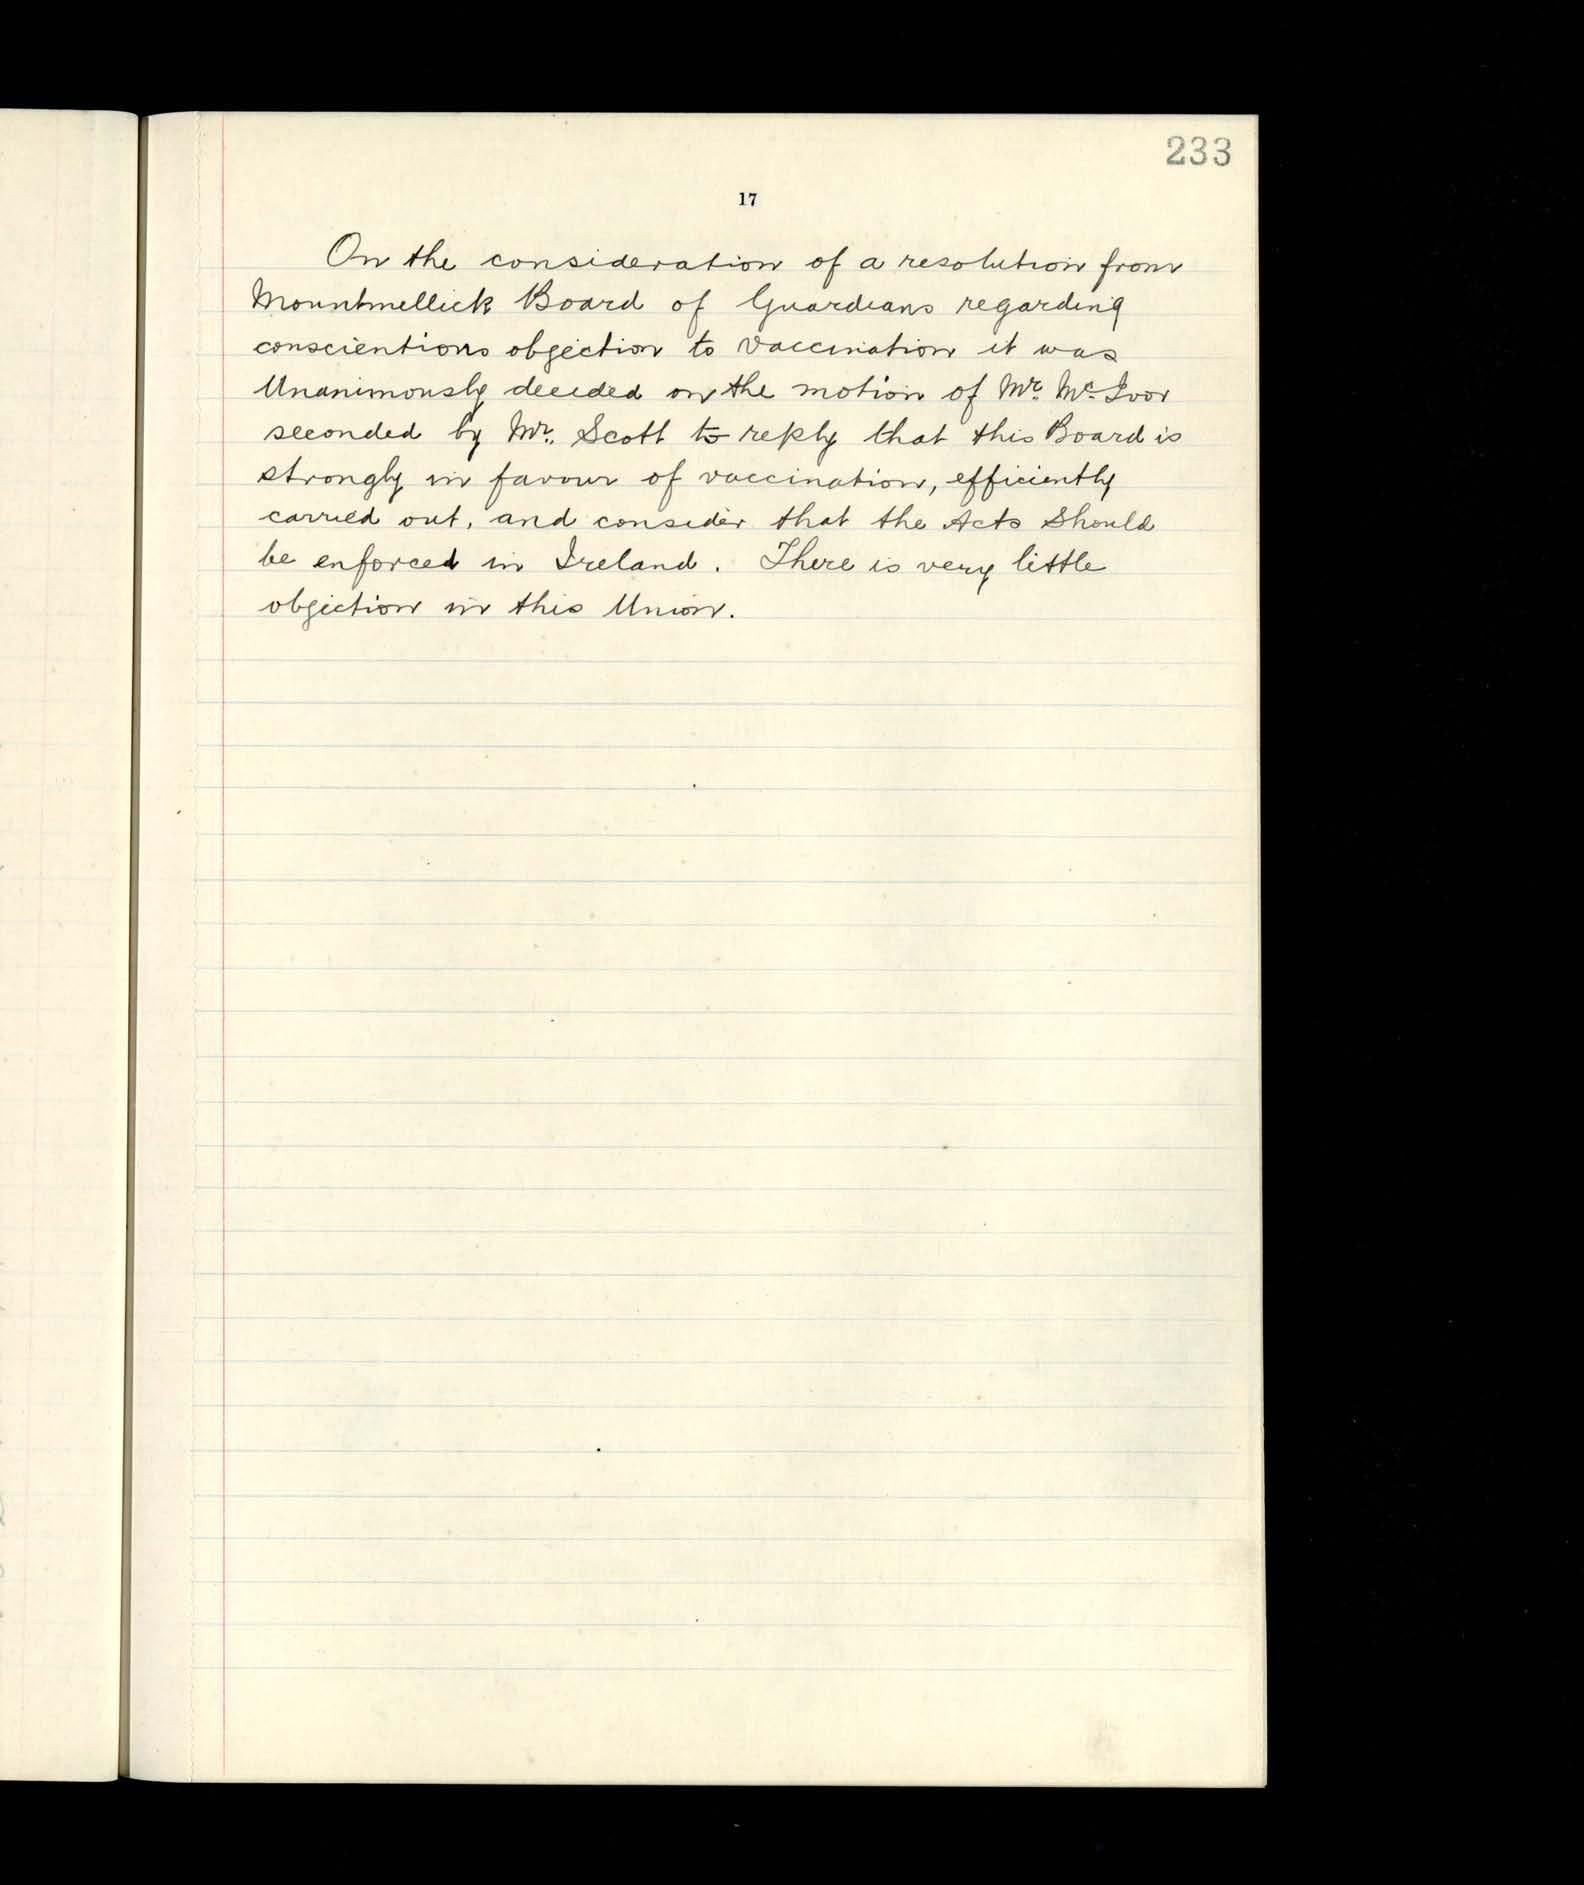 233
17
On the consideration of a resolution from
Mountmellick Board of Guardians regarding
conscientious objection to vaccination it was
Unanimously decided on the motion of Mr. McIvor
seconded by Mr. Scott to reply that this Board is
strongly in favour of vaccination, efficiently
carried out, and consider that the Acts should
be enforced in Ireland. There is very little
objection in this Union.